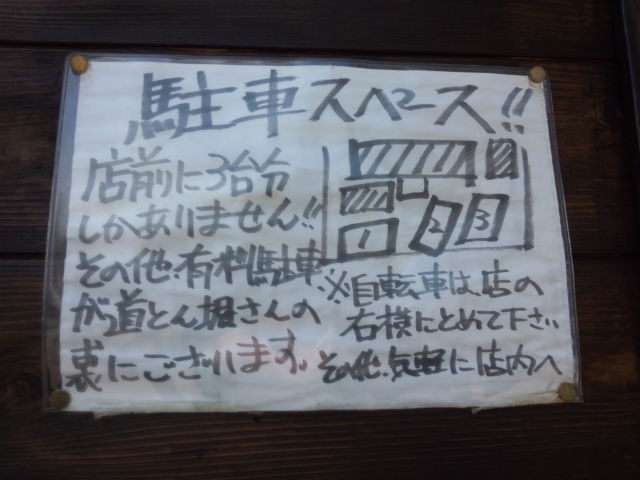 駐車スペース!!
店前に3台分
しかありません!!
その他、有料駐車
が道とん堀さんの
裏にございます。
1 2 3
※自転車は、店の
右横にとめて下さい
その他、気軽に店内へ